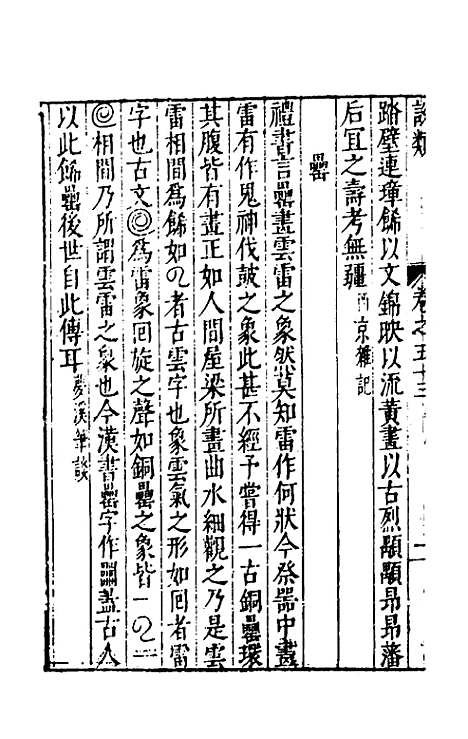 說類　卷之五十三
踏壁連璋餙以文錦映以流黃畫以古烈顒顒昂昂藩
后宜之壽考無疆西京雜記
罍
禮書言罍畫雲雷之象然莫知雷作何狀今祭器中畫
雷有作鬼神伐鼓之象此甚不經予嘗得一古銅罍環
其腹皆有畫正如人間屋梁所畫曲水細觀之乃是雲
雷相間為餙如者古雲字也象雲氣之形如回者雷
字也古文◎為雷象回旋之聲如銅罍之象皆一一
◎相間乃所謂雲雷之象也今漢書罍字作𤳳盖古人
以此餙罍後世自此傳耳夢溪筆談